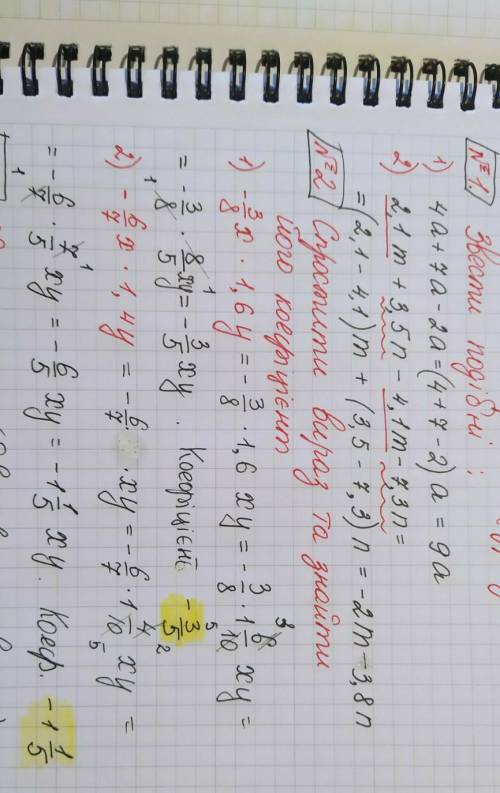 №1. Звести подібні:
1) 4a + 7a - 2a = (4 + 7 - 2) a = 9a
2) 2,1m + 3,5n - 4,1m - 7,3n =
= (2,1 - 4,1)m + (3,5 - 7,3)n = -2m - 3,8n
№2 Спростити вираз та знайти
його коефіцієнт
1) -3/8 x · 1,6y = -3/8 · 1,6 xy = -3/8 · 1 6/10 xy =
= -3/8 · 8/5 xy = -3/5 xy. Коефіцієнт -3/5
2) -6/7 x · 1,4y = -6/7 · xy = -6/7 · 1 4/10 xy =
= -6/7 · 7/5 xy = -6/5 xy = -1 1/5 xy. Коеф. -1 1/5